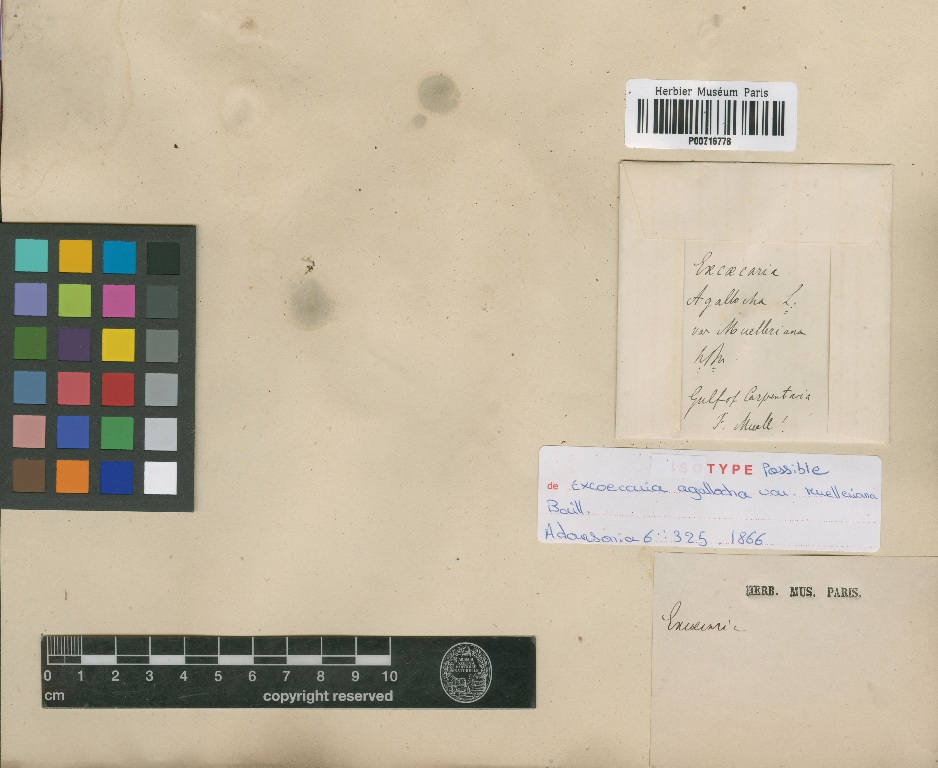 Herbier Muséum Paris
P00716778
Excœcaria
Agallocha L.
var Muelleriana
Gulf of Carpentaria
F. Muell!
ISOTYPE Possible
de Excoecaria agallocha var. muelleriana
Baill.
Adansonia 6 : 325 . 1866
HERB. MUS. PARIS.
Excœcaria
0 1 2 3 4 5 6 7 8 9 10
cm
copyright reserved